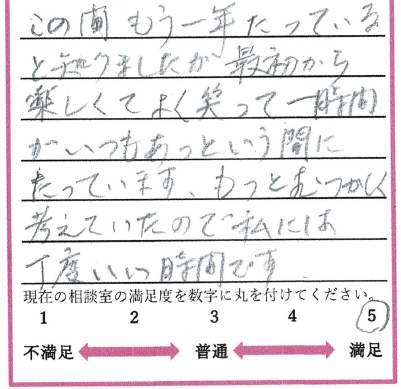 この間もう一年たっている
と知りましたが最初から
楽しくてよく笑って一時間
がいつもあっという間に
たっています、もっとむつかしく
考えていたので私には
丁度いい時間です.
現在の相談室の満足度を数字に丸を付けてください。
1 2 3 4 5
不満足 普通 満足